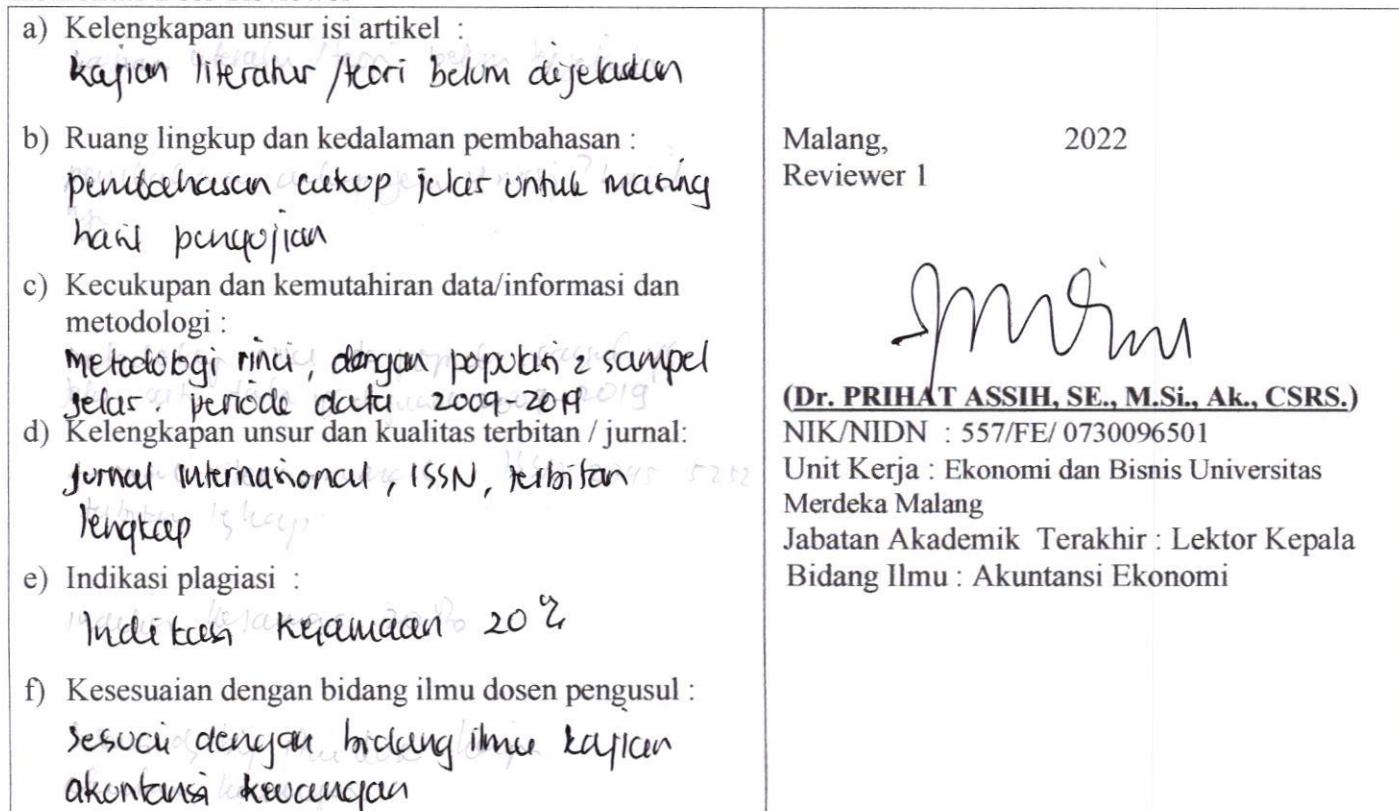 a) Kelengkapan unsur isi artikel :
kajian literatur / teori belum dijelaskan
b) Ruang lingkup dan kedalaman pembahasan :
pembahasan cukup jelas untuk masing
hasil pengujian
c) Kecukupan dan kemutahiran data/informasi dan
metodologi :
Metodologi rinci, dengan populasi & sampel
jelas. periode data 2009-2019
d) Kelengkapan unsur dan kualitas terbitan / jurnal:
Jurnal Internasional, ISSN, terbitan
lengkap
e) Indikasi plagiasi :
Indikasi kesamaan 20%
f) Kesesuaian dengan bidang ilmu dosen pengusul :
Sesuai dengan bidang ilmu kajian
akuntansi keuangan
Malang, 2022
Reviewer 1
(Dr. PRIHAT ASSIH, SE., M.Si., Ak., CSRS.)
NIK/NIDN : 557/FE/ 0730096501
Unit Kerja : Ekonomi dan Bisnis Universitas
Merdeka Malang
Jabatan Akademik Terakhir : Lektor Kepala
Bidang Ilmu : Akuntansi Ekonomi